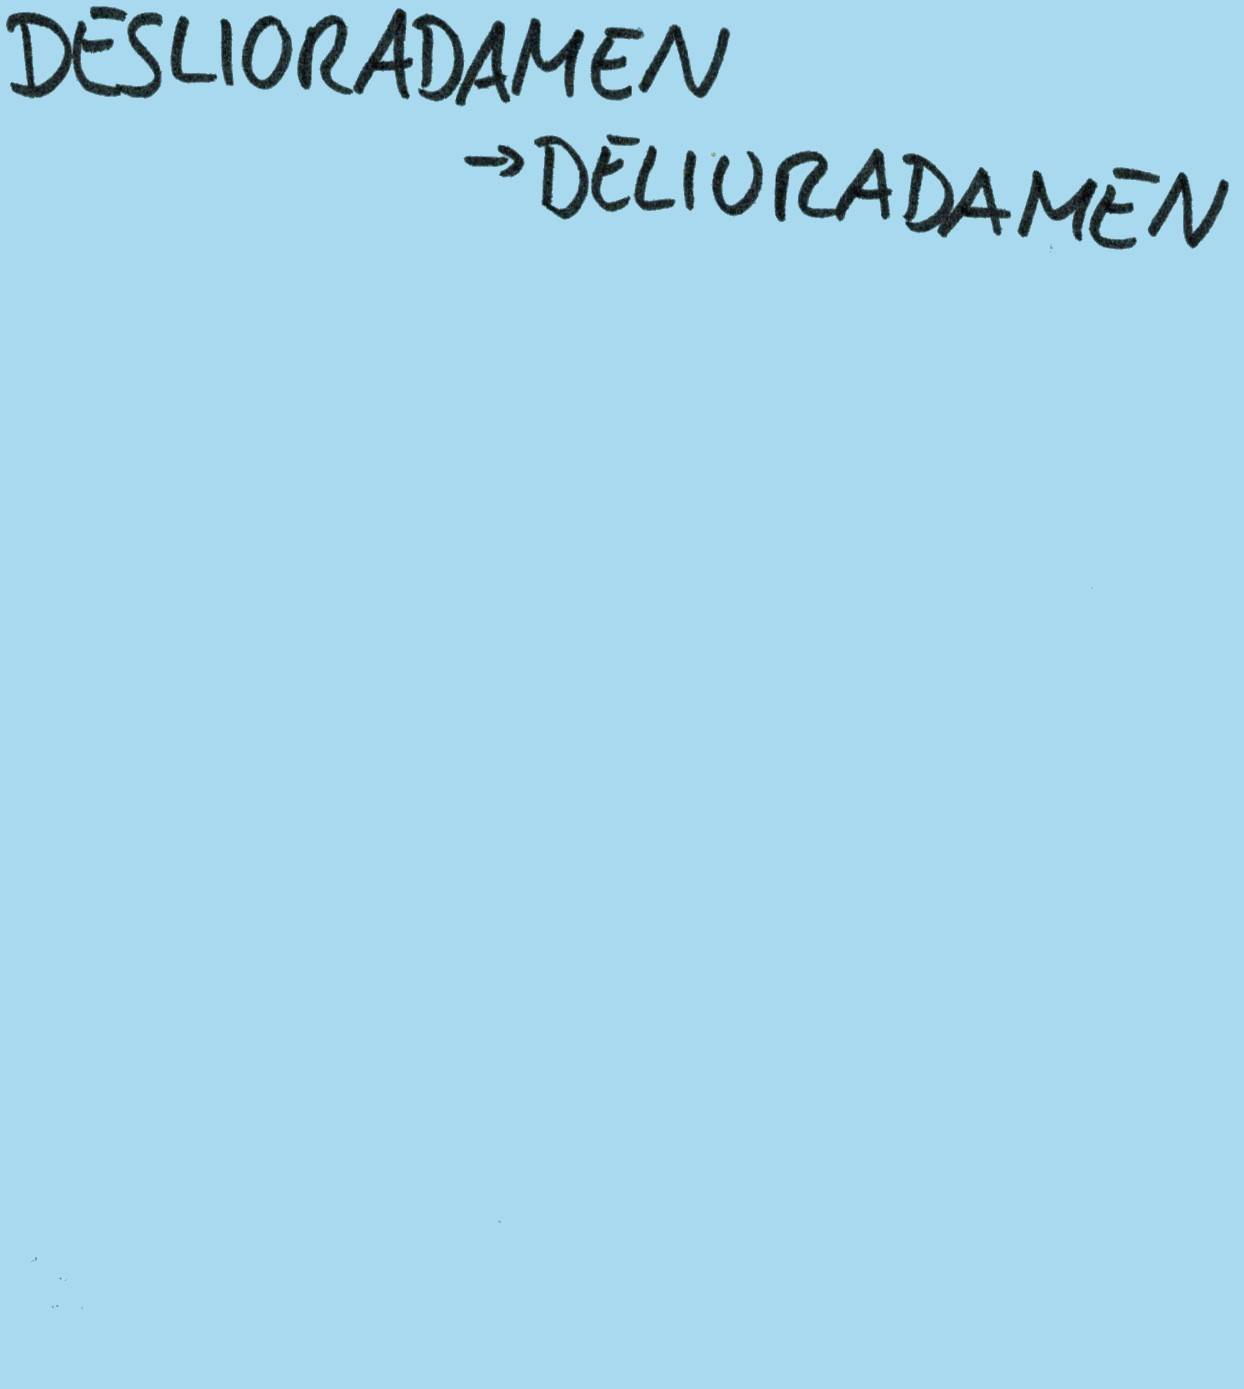 DESLIORADAMEN
→DELIURADAMEN